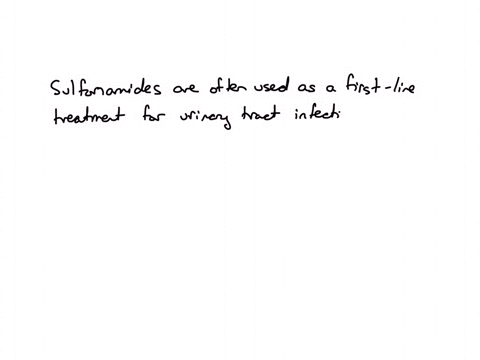 Sulfonamides are often used as a first-line
treatment for urinary tract infecti